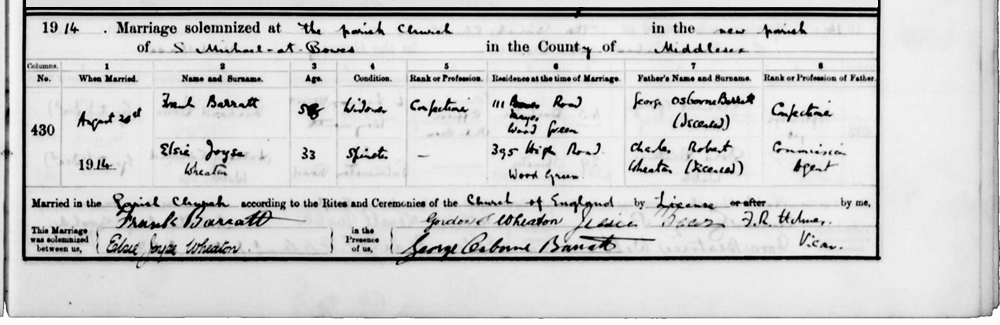 1914. Marriage solemnized at the parish Church in the new parish
of S. Michael-at-Bowes in the County of Middlesex
Columns. 1 2 3 4 5 6 7 8
No. When Married. Name and Surname. Age. Condition. Rank or Profession. Residence at the time of Marriage. Father's Name and Surname. Rank or Profession of Father.
430 August 1914 Frank Barratt Widower Confectioner 111 Road Wood Green George Osborne Barratt (Deceased) Confectioner
Elsie Joyce Wheaton 33 Spinster — 395 High Road Wood Green Charles Robert Wheaton (Deceased) Commission Agent
Married in the Parish Church according to the Rites and Ceremonies of the Church of England by License or after by me,
This Marriage was solemnized between us, Frank Barratt in the Presence of us, Gordon Wheaton Jessie F.R. Vicar.
Elsie Joyce Wheaton George Osborne Barratt